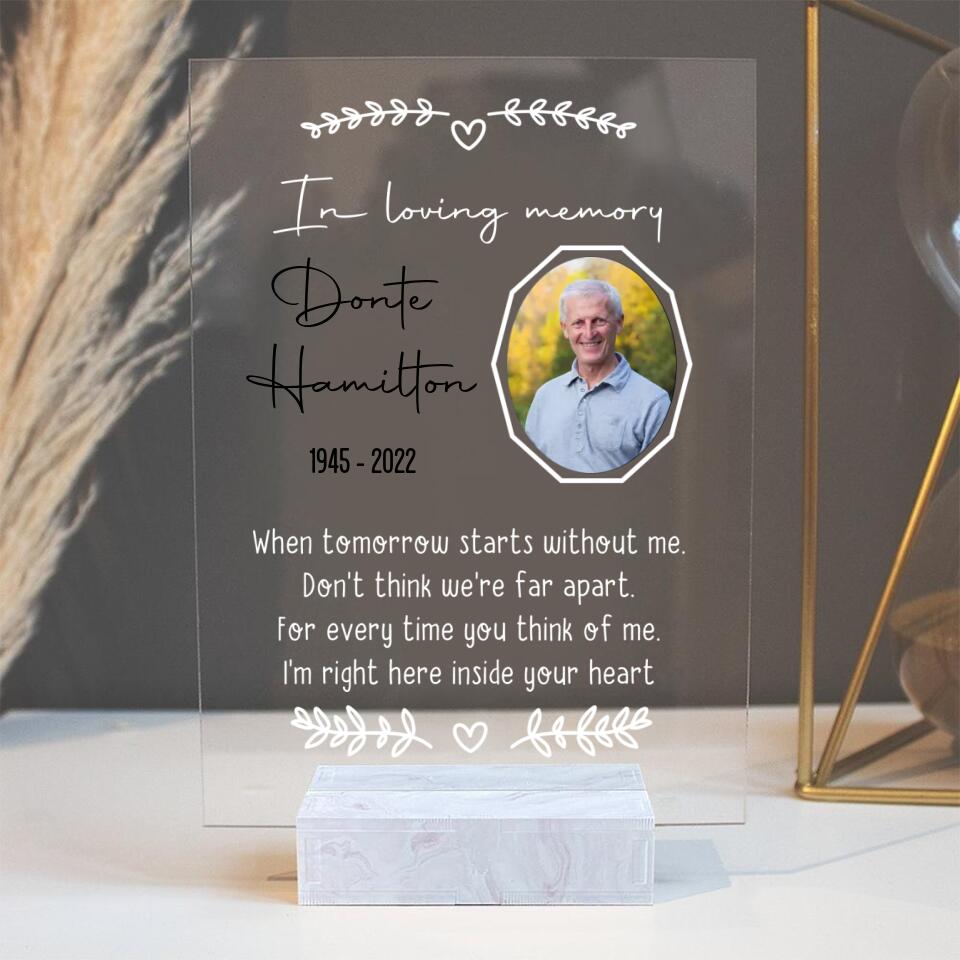 In loving memory
Donte
Hamilton
1945 - 2022
When tomorrow starts without me.
Don't think we're far apart.
For every time you think of me.
I'm right here inside your heart